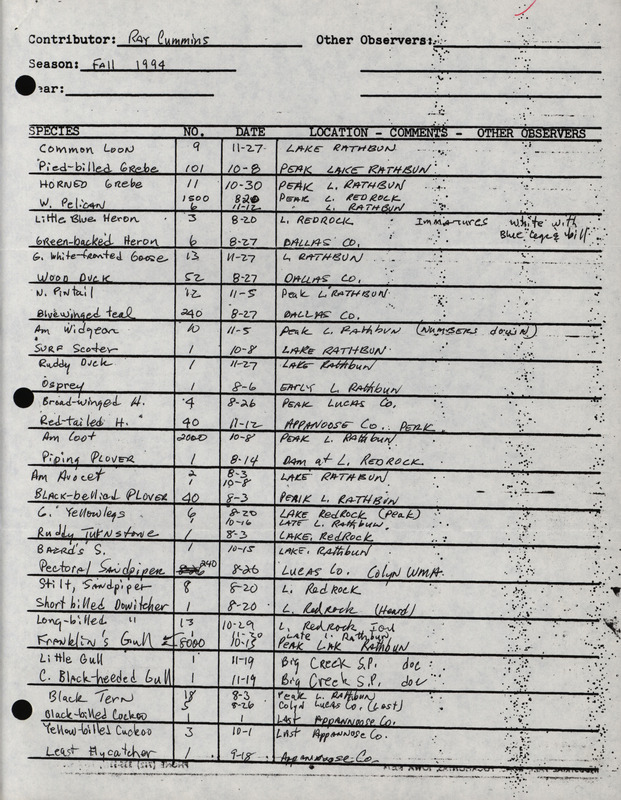 Contributor: Ray Cummins Other Observers:
Season: Fall 1994
ear:
SPECIES NO. DATE LOCATION - COMMENTS - OTHER OBSERVERS
Common Loon 9 11-27 LAKE RATHBUN
Pied-billed Grebe 101 10-8 PEAK LAKE RATHBUN
HORNED Grebe 11 10-30 PEAK L. RATHBUN
W. Pelican 1500 8-20 PEAK L. REDROCK
6 11-12 L. RATHBUN
Little Blue Heron 3 8-20 L. REDROCK Immatures White with
Blue legs & bill
Green-backed Heron 6 8-27 DALLAS CO.
G. White-fronted Goose 13 11-27 L. RATHBUN
WOOD DUCK 52 8-27 DALLAS CO.
N. Pintail 12 11-5 Peak L. RATHBUN
Bluewinged teal 240 8-27 DALLAS CO.
Am Widgeon 10 11-5 Peak L. Rathbun (NUMBERS down)
SURF Scoter 1 10-8 LAKE RATHBUN
Ruddy Duck 1 11-27 LAKE Rathbun
Osprey 1 8-6 EARLY L. Rathbun
Broad-winged H. 4 8-26 PEAK LUCAS Co.
Red-tailed H. 40 11-12 APPANOOSE Co. PEAK
Am Coot 2000 10-8 PEAK L. Rathbun
Piping PLOVER 1 8-14 Dam at L. REDROCK
Am Avocet 2 8-3 LAKE RATHBUN
1 10-8
BLACK-bellied PLOVER 40 8-3 PEAK L. RATHBUN
G. Yellowlegs 6 8-20 LAKE REDROCK (Peak)
1 10-16 LATE L. Rathbun
Ruddy Turnstone 1 8-3 LAKE REDROCK
BAIRD'S S. 1 10-15 LAKE Rathbun
Pectoral Sandpiper 240 8-26 LUCAS Co. Colyn WMA
Stilt, Sandpiper 8 8-20 L. Redrock
Short billed Dowitcher 1 8-20 L. Redrock (Heard)
Long-billed " 13 10-29 L. Redrock
1 11-30 Late L. Rathbun
Franklin's Gull 8000 10-15 PEAK LAK Rathbun
Little Gull 1 11-19 Big Creek S.P. doc
C. Black-headed Gull 1 11-19 Big Creek S.P. doc
Black Tern 18 8-3 Peak L. Rathbun
5 8-26 Colyn Lucas Co. (Last)
Black-billed Cuckoo 1 1 Last Appannoose Co.
Yellow-billed Cuckoo 3 10-1 Last Appannose Co.
Least Flycatcher 1 9-18 Appannoose Co.